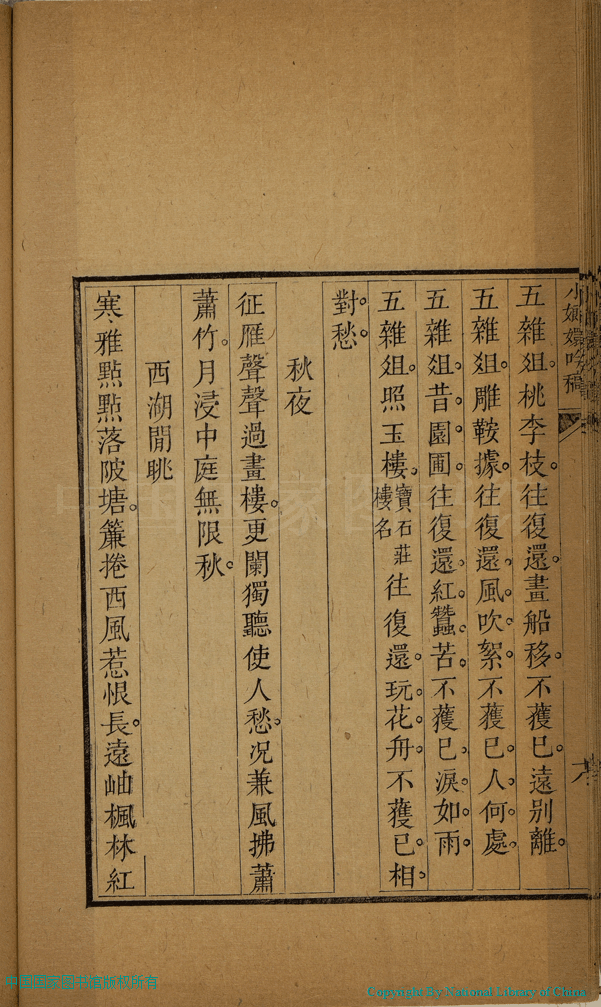 小嫏嬛吟稿
五雜俎。桃李枝。往復還。畫船移。不蒦已。遠别離。
五雜俎。雕鞍據。往復還。風吹絮。不蒦已。人何處。
五雜俎。昔園圃。往復還。紅蠶苦。不蒦已。淚如雨。
五雜俎。照玉樓。寶石莊樓名往復還。玩花舟。不蒦已。相
對愁。
秋夜
征雁聲聲過畫樓。更闌獨聽使人愁。况兼風拂蕭
蕭竹。月浸中庭無限秋。
西湖閒眺
寒雅點點落陂塘。簾捲西風惹恨長。遠岫楓林紅
Copyright By National Library of China